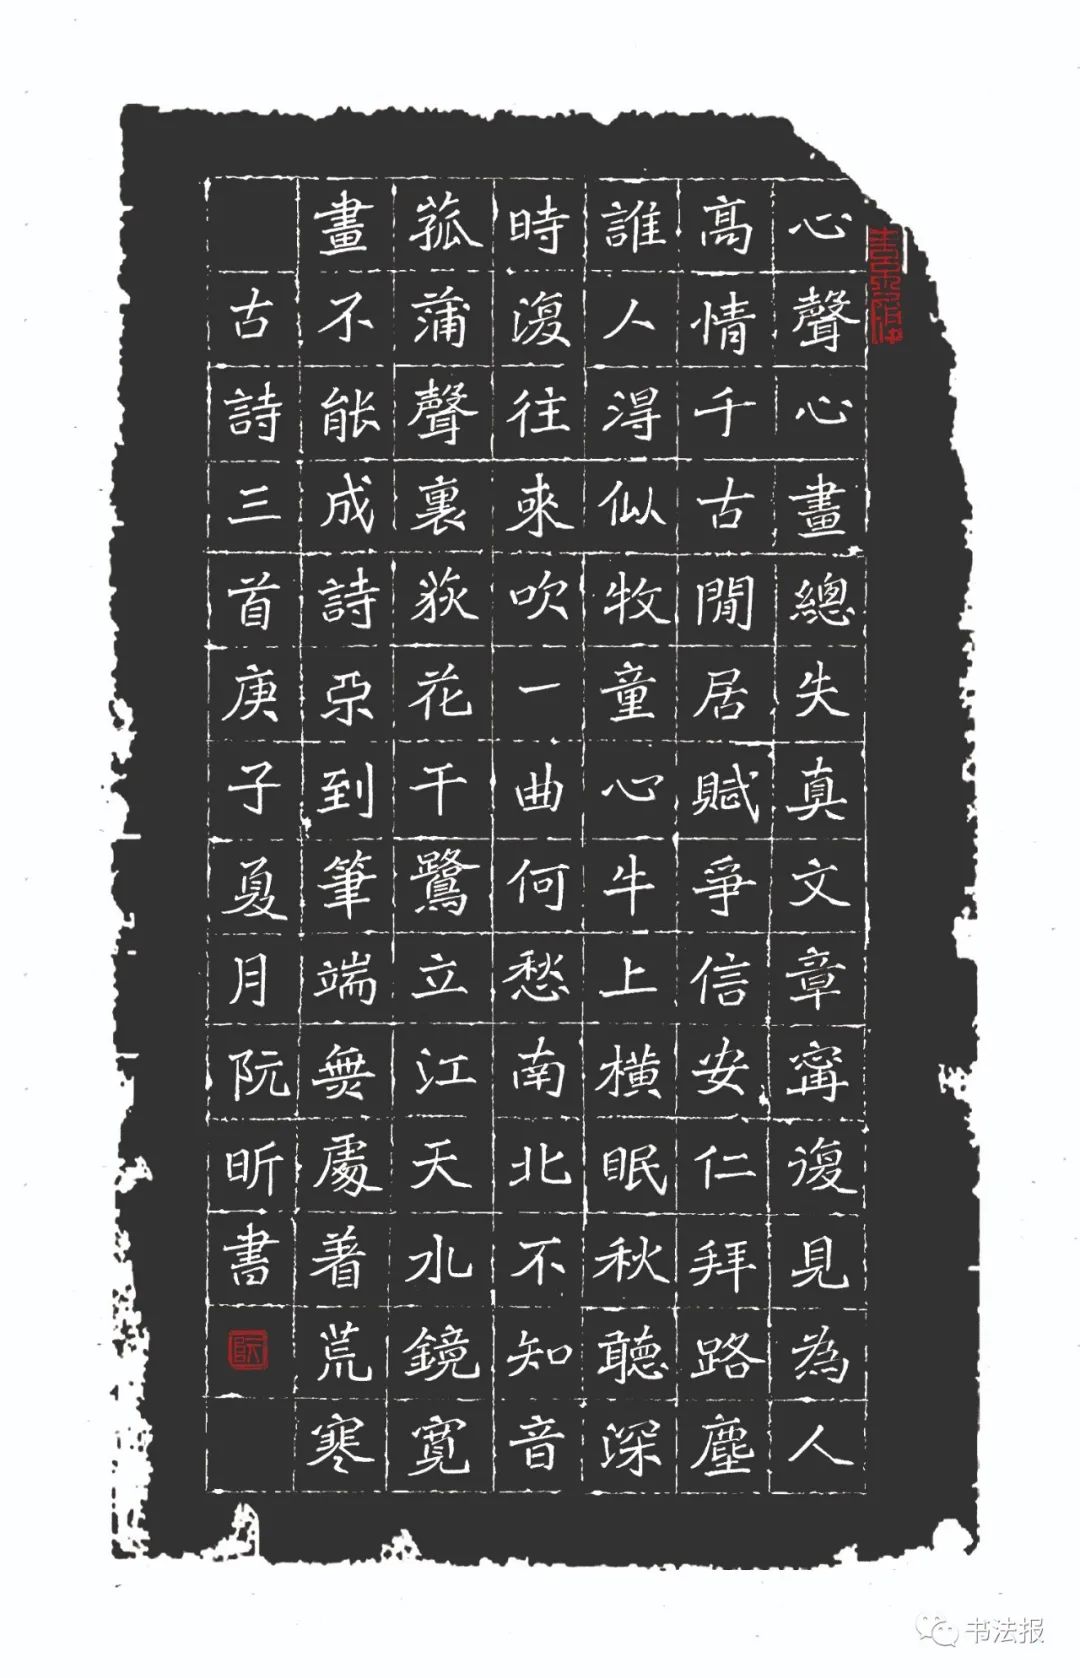 心聲心畫總失真文章甯復見為人
高情千古閒居賦爭信安仁拜路塵
誰人得似牧童心牛上橫眠秋聽深
時復往來吹一曲何愁南北不知音
菰蒲聲裏荻花干鷺立江天水鏡寬
畫不能成詩亞到筆端無處着荒寒
古詩三首庚子夏月阮昕書
阮
书法报